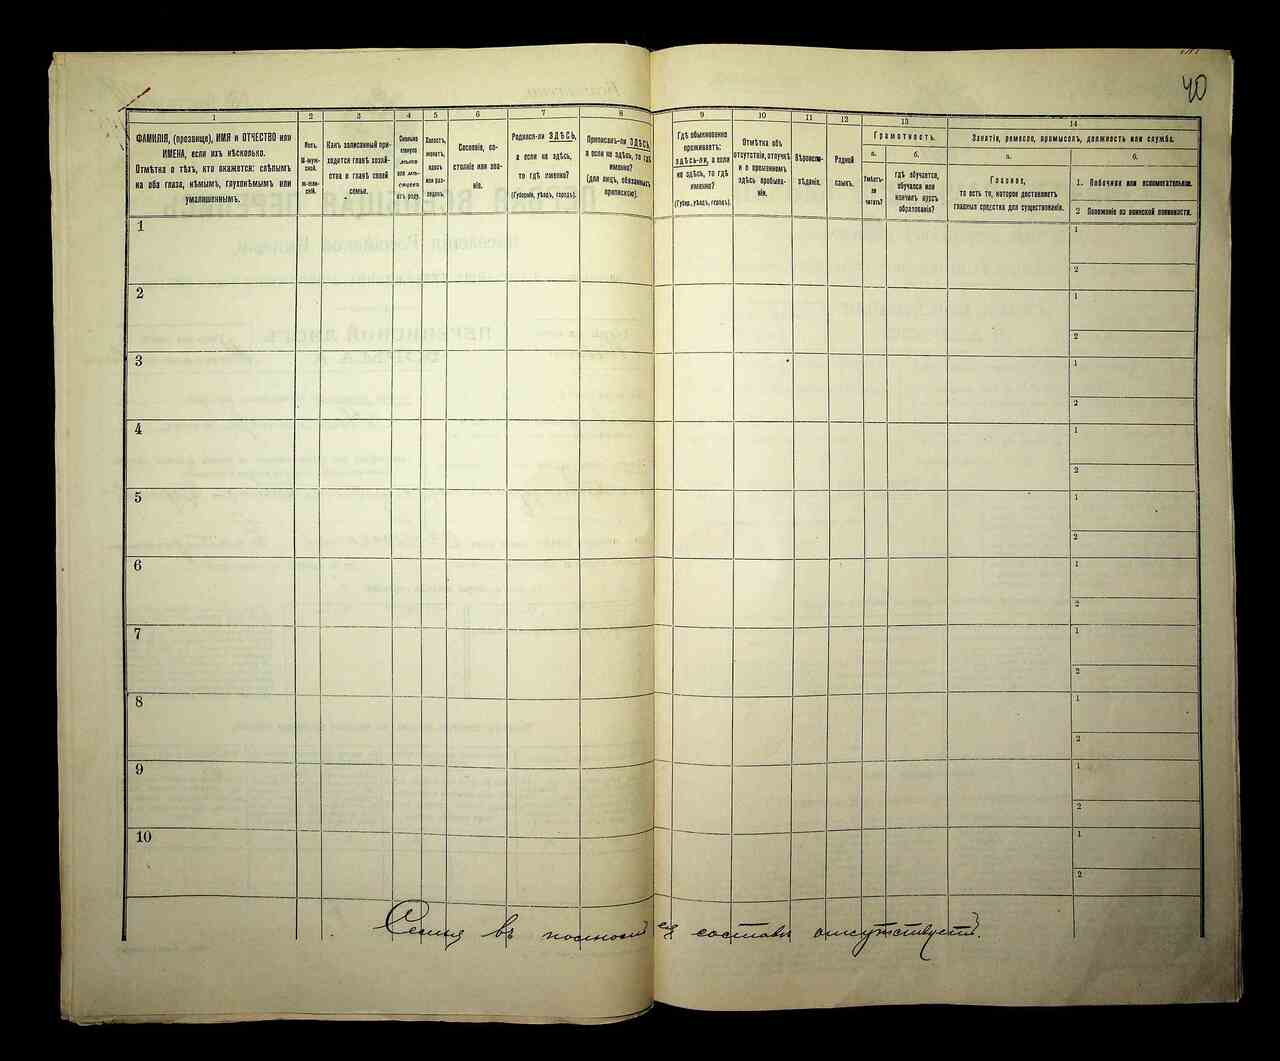 40
1 2 3 4 5 6 7 8 9 10 11 12 13 14
ФАМИЛІЯ, (прозвище), ИМЯ и ОТЧЕСТВО или
ИМЕНА, если ихъ нѣсколько.
Отмѣтка о тѣхъ, кто окажется: слѣпымъ
на оба глаза, нѣмымъ, глухонѣмымъ или
умалишеннымъ.
Полъ.
М-муж-
ской.
Ж-жен-
скій.
Какъ записанный при-
ходится главѣ хозяй-
ства и главѣ своей
семьи.
Сколько
минуло
лѣтъ
или мѣ-
сяцевъ
отъ роду.
Холостъ,
женатъ,
вдовъ
или раз-
веденъ.
Сословіе, со-
стояніе или зва-
ніе.
Родился-ли ЗДѢСЬ,
а если не здѣсь,
то гдѣ именно?
(Губернія, уѣздъ, городъ).
Приписанъ-ли ЗДѢСЬ,
а если не здѣсь, то гдѣ
именно?
(для лицъ, обязанныхъ
припискою).
Гдѣ обыкновенно
проживаетъ:
здѣсь-ли, а если
не здѣсь, то гдѣ
именно?
(Губер., уѣздъ, городъ).
Отмѣтка объ
отсутствіи, отлучкѣ
и о временномъ
здѣсь пребыва-
ніи.
Вѣроиспо-
вѣданіе.
Родной
языкъ.
Грамотность.
а.
Умѣетъ-
ли
читать?
б.
гдѣ обучается,
обучался или
кончилъ курсъ
образованія?
Занятіе, ремесло, промыселъ, должность или служба.
а.
Главное,
то есть то, которое доставляетъ
главныя средства для существованія.
б.
1. Побочное или вспомогательное.
2 Положеніе по воинской повинности.
1 1
2
2 1
2
3 1
2
4 1
2
5 1
2
6 1
2
7 1
2
8 1
2
9 1
2
10 1
2
Семья въ полномъ составѣ отсутствуетъ.